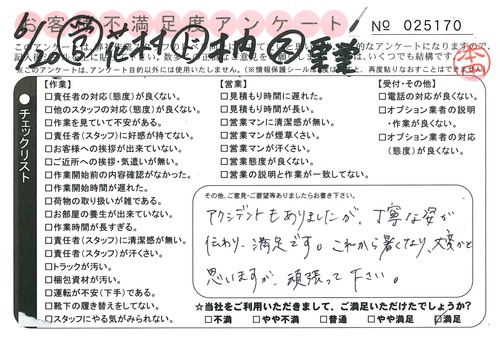 お客様不満足度アンケート
No 025170
※このアンケートは、アンケート目的以外には使用いたしません。(※情報保護シール
チェックリスト
【作業】
□責任者の対応(態度)が良くない。
□他のスタッフの対応(態度)が良くない。
□作業を見ていて不安がある。
□責任者(スタッフ)に好感が持てない。
□お客様への挨拶が出来ていない。
□ご近所への挨拶・気遣いが無い。
□作業開始前の内容確認がなかった。
□作業開始時間が遅れた。
□荷物の取り扱いが雑である。
□お部屋の養生が出来ていない。
□作業時間が長すぎる。
□責任者(スタッフ)に清潔感が無い。
□責任者(スタッフ)が汗くさい。
□トラックが汚い。
□梱包資材が汚い。
□運転が不安(下手)である。
□靴下の履き替えをしてない。
□スタッフにやる気がみられない。
【営業】
□見積もり時間に遅れた。
□見積もり時間が長い。
□営業マンに清潔感が無い。
□営業マンが煙草くさい。
□営業マンが汗くさい。
□営業態度が良くない。
□営業の説明と作業が一致してない。
【受付・その他】
□電話の対応が良くない。
□オプション業者の説明
・作業が良くない。
□オプション業者の対応
(態度)が良くない。
その他、ご意見・ご要望等ありましたらお書き下さい。
アクシデントもありましたが、丁寧な姿が
伝わり、満足です。これから暑くなり、大変かと
思いますが、頑張って下さい。
★当社をご利用いただきまして、ご満足いただけたでしょうか?
□不満 □やや不満 □普通 □やや満足 □満足